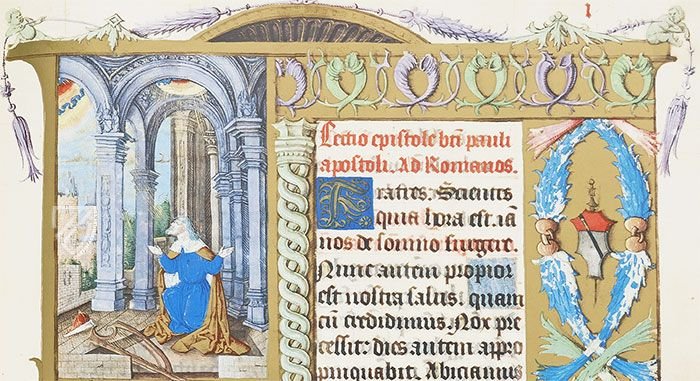 Lectio epistole bti pauli
apostoli. Ad Romanos.
Fratres: Scientes
quia hora est. iā
nos de somno surgere.
Nunc autem propior
est nostra salus. quam
cū credidimus. Nox pre
cessit: dies autem appro
pinquabit. Abiciamus